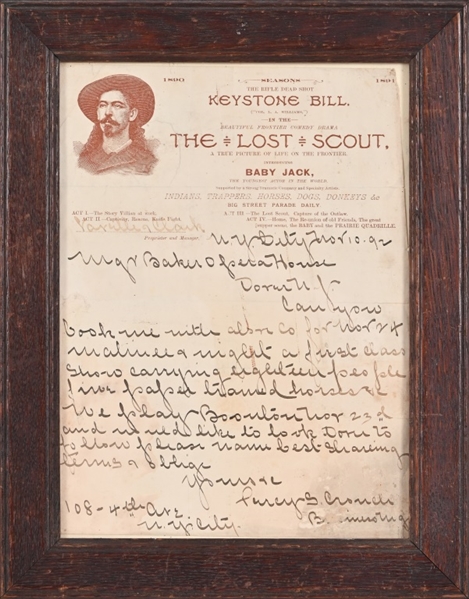 1890 SEASONS 1891
THE RIFLE DEAD SHOT
KEYSTONE BILL.
IN THE
BEAUTIFUL FRONTIER COMEDY DRAMA
THE ÷ LOST ÷ SCOUT,
A TRUE PICTURE OF LIFE ON THE FRONTIER.
INTRODUCING
BABY JACK,
THE YOUNGEST ACTOR IN THE WORLD.
Supported by a Strong Dramatic Company and Specialty Artists.
INDIANS, TRAPPERS, HORSES, DOGS, DONKEYS &c
BIG STREET PARADE DAILY
ACT I—The Story Villian at work.
ACT II—Capturing, Rescue, Knife Fight.
ACT III—The Lost Scout. Capture of the Outlaw.
ACT IV—Home, The Reunion of old Friends, The great
supper scene, the BABY and the PRAIRIE QUADRILLE.
Proprietor and Manager.
N.Y. City Nov 10. 92
Mgr Baker Opera House
Dover N.J.
Can you
book me with above Co for Nov 24
matinee & night a first class
show carrying eighteen people
fine paper trained horses &c
We play Boonton Nov 23d
and would like to book Dover to
follow please name best sharing
terms & oblige
Yours &c
108 - 4th Ave Percy S.
N.Y. City.